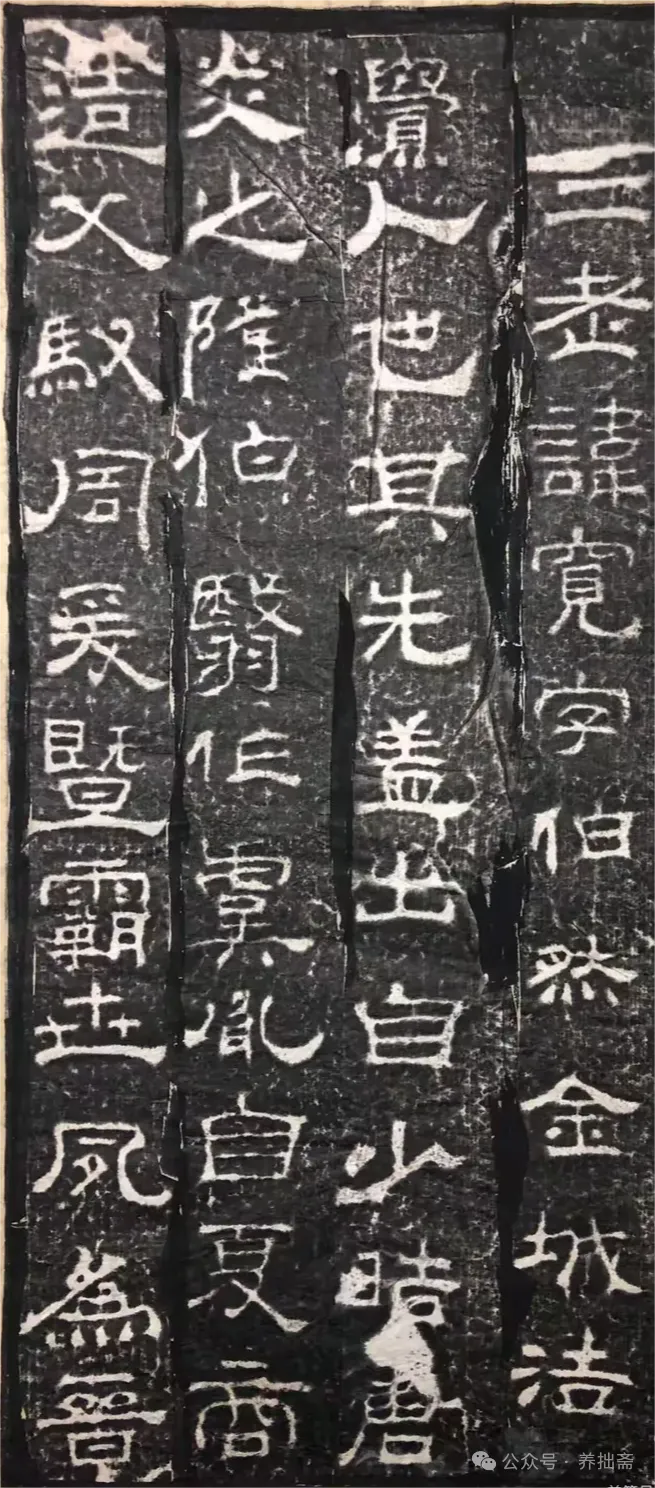 三老諱寬字伯然金城浩
亹人也其先蓋出自少晧唐
炎之隆伯翳作虞胤自夏商
造父馭周爰暨霸世夙為晉
公众号 · 养拙斋